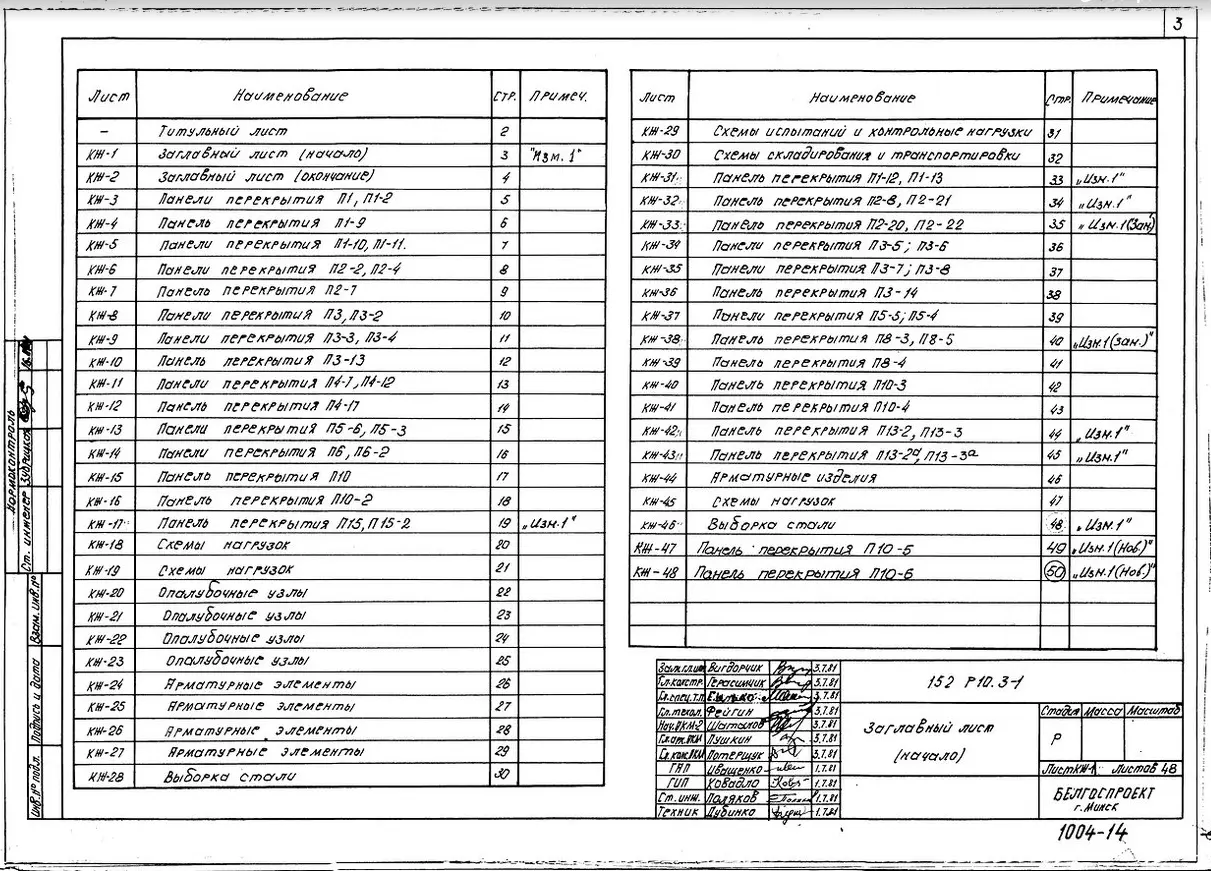 3
Лист Наименование Стр. Примеч.
— Титульный лист 2
КЖ-1 Заглавный лист (начало) 3 "Изм. 1"
КЖ-2 Заглавный лист (окончание) 4
КЖ-3 Панели перекрытия П1, П1-2 5
КЖ-4 Панель перекрытия П1-9 6
КЖ-5 Панели перекрытия П1-10, П1-11. 7
КЖ-6 Панели перекрытия П2-2, П2-4 8
КЖ-7 Панель перекрытия П2-7 9
КЖ-8 Панели перекрытия П3, П3-2 10
КЖ-9 Панели перекрытия П3-3, П3-4 11
КЖ-10 Панель перекрытия П3-13 12
КЖ-11 Панели перекрытия П4-7, П4-12 13
КЖ-12 Панель перекрытия П4-17 14
КЖ-13 Панели перекрытия П5-6, П5-3 15
КЖ-14 Панели перекрытия П6, П6-2 16
КЖ-15 Панель перекрытия П10 17
КЖ-16 Панель перекрытия П10-2 18
КЖ-17 Панель перекрытия П15, П15-2 19 „Изм.1"
КЖ-18 Схемы нагрузок 20
КЖ-19 Схемы нагрузок 21
КЖ-20 Опалубочные узлы 22
КЖ-21 Опалубочные узлы 23
КЖ-22 Опалубочные узлы 24
КЖ-23 Опалубочные узлы 25
КЖ-24 Арматурные элементы 26
КЖ-25 Арматурные элементы 27
КЖ-26 Арматурные элементы 28
КЖ-27 Арматурные элементы 29
КЖ-28 Выборка стали 30
Лист Наименование Стр. Примечание
КЖ-29 Схемы испытаний и контрольные нагрузки 31
КЖ-30 Схемы складирования и транспортировки 32
КЖ-31 Панель перекрытия П1-12, П1-13 33 „Изм.1"
КЖ-32 Панель перекрытия П2-8, П2-21 34 „Изм.1"
КЖ-33 Панель перекрытия П2-20, П2-22 35 „Изм.1(Зан)"
КЖ-34 Панели перекрытия П3-5; П3-6 36
КЖ-35 Панели перекрытия П3-7; П3-8 37
КЖ-36 Панель перекрытия П3-14 38
КЖ-37 Панели перекрытия П5-5; П5-4 39
КЖ-38 Панель перекрытия П8-3, П8-5 40 „Изм.1(зан.)"
КЖ-39 Панель перекрытия П8-4 41
КЖ-40 Панель перекрытия П10-3 42
КЖ-41 Панель перекрытия П10-4 43
КЖ-42 Панель перекрытия П13-2, П13-3 44 „Изм.1"
КЖ-43 Панель перекрытия П13-2а, П13-3а 45 „Изм.1"
КЖ-44 Арматурные изделия 46
КЖ-45 Схемы нагрузок 47
КЖ-46 Выборка стали 48 „Изм.1"
КЖ-47 Панель перекрытия П10-5 49 „Изм.1(Нов.)"
КЖ-48 Панель перекрытия П10-6 50 „Изм.1(Нов.)"
Вигдорчик 3.7.81
Гл.констр. Герасимчик 3.7.81
3.7.81
Гл.техол. Фейгин 3.7.81
Шаталов 3.7.81
Пушкин 3.7.81
Потерщук 3.7.81
ГНП Иващенко 1.7.81
ГИП Ковадло 1.7.81
Ст.инж. Поляков 1.7.81
Техник Дубинко 1.7.81
152 Р10.3-1
Заглавный лист
(начало)
Стадия Масса Масштаб
Р
Лист КЖ-1 Листов 48
БЕЛГОСПРОЕКТ
г. Минск
1004-14
Нормоконтроль
Ст. инженер
Взам. инв.№
Подпись и дата
Инв.№ подл.